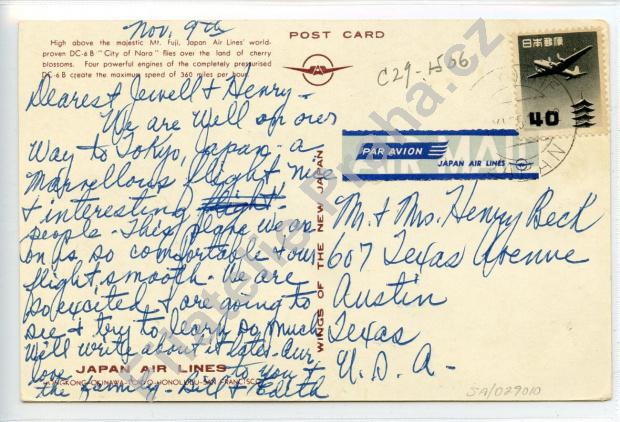 Nov. 9th
High above the majestic Mt. Fuji, Japan Air Lines' world-
proven DC-6B "City of Nara" flies over the land of cherry
blossoms. Four powerful engines of the completely pressurised
DC-6B create the maximum speed of 360 miles per hour.
Dearest Jewell & Henry -
We are well on our
way to Tokyo, Japan - a
marvellous flight, nice
& interesting flight
people - This plane we are
on is so comfortable & our
flight, smooth. We are
so excited & are going to
see & try to learn so much
We'll write about it later. Our
love to you &
the family - Bill & Edith
JAPAN AIR LINES
HONGKONG-OKINAWA-TOKYO-HONOLULU-SAN FRANCISCO
WINGS OF THE NEW JAPAN
POST CARD
C29-1506
日本郵便
40
PAR AVION
JAPAN AIR LINES
Mr. & Mrs. Henry Beck
607 Texas Avenue
Austin
Texas
U.S.A -
SA/029010
Filatelie-Praha.cz